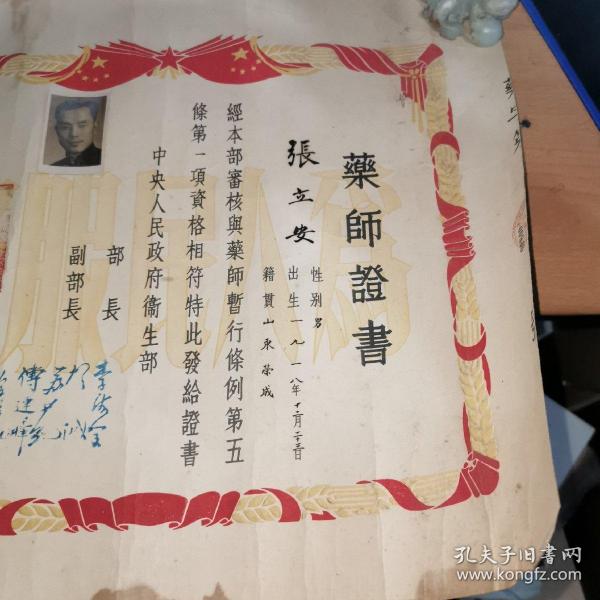 藥師證書
張立安
性别男
出生一九一八年十二月二十三日
籍貫山東榮成
經本部審核與藥師暫行條例第五
條第一項資格相符特此發給證書
中央人民政府衞生部
部長
副部長
李德全
傅連暲
為人民服
孔夫子旧书网
www.kongfz.com